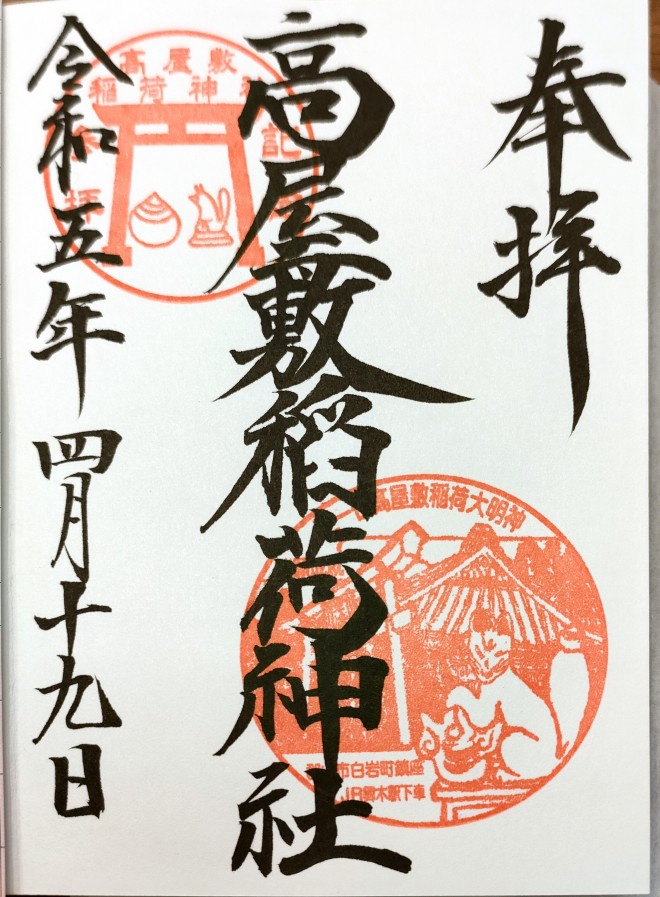 奉拝
高屋敷稲荷神社
令和五年 四月十九日
高屋敷
稲荷神社
記
拝
高屋敷稲荷大明神
市白岩町鎮座
JR 木駅下車